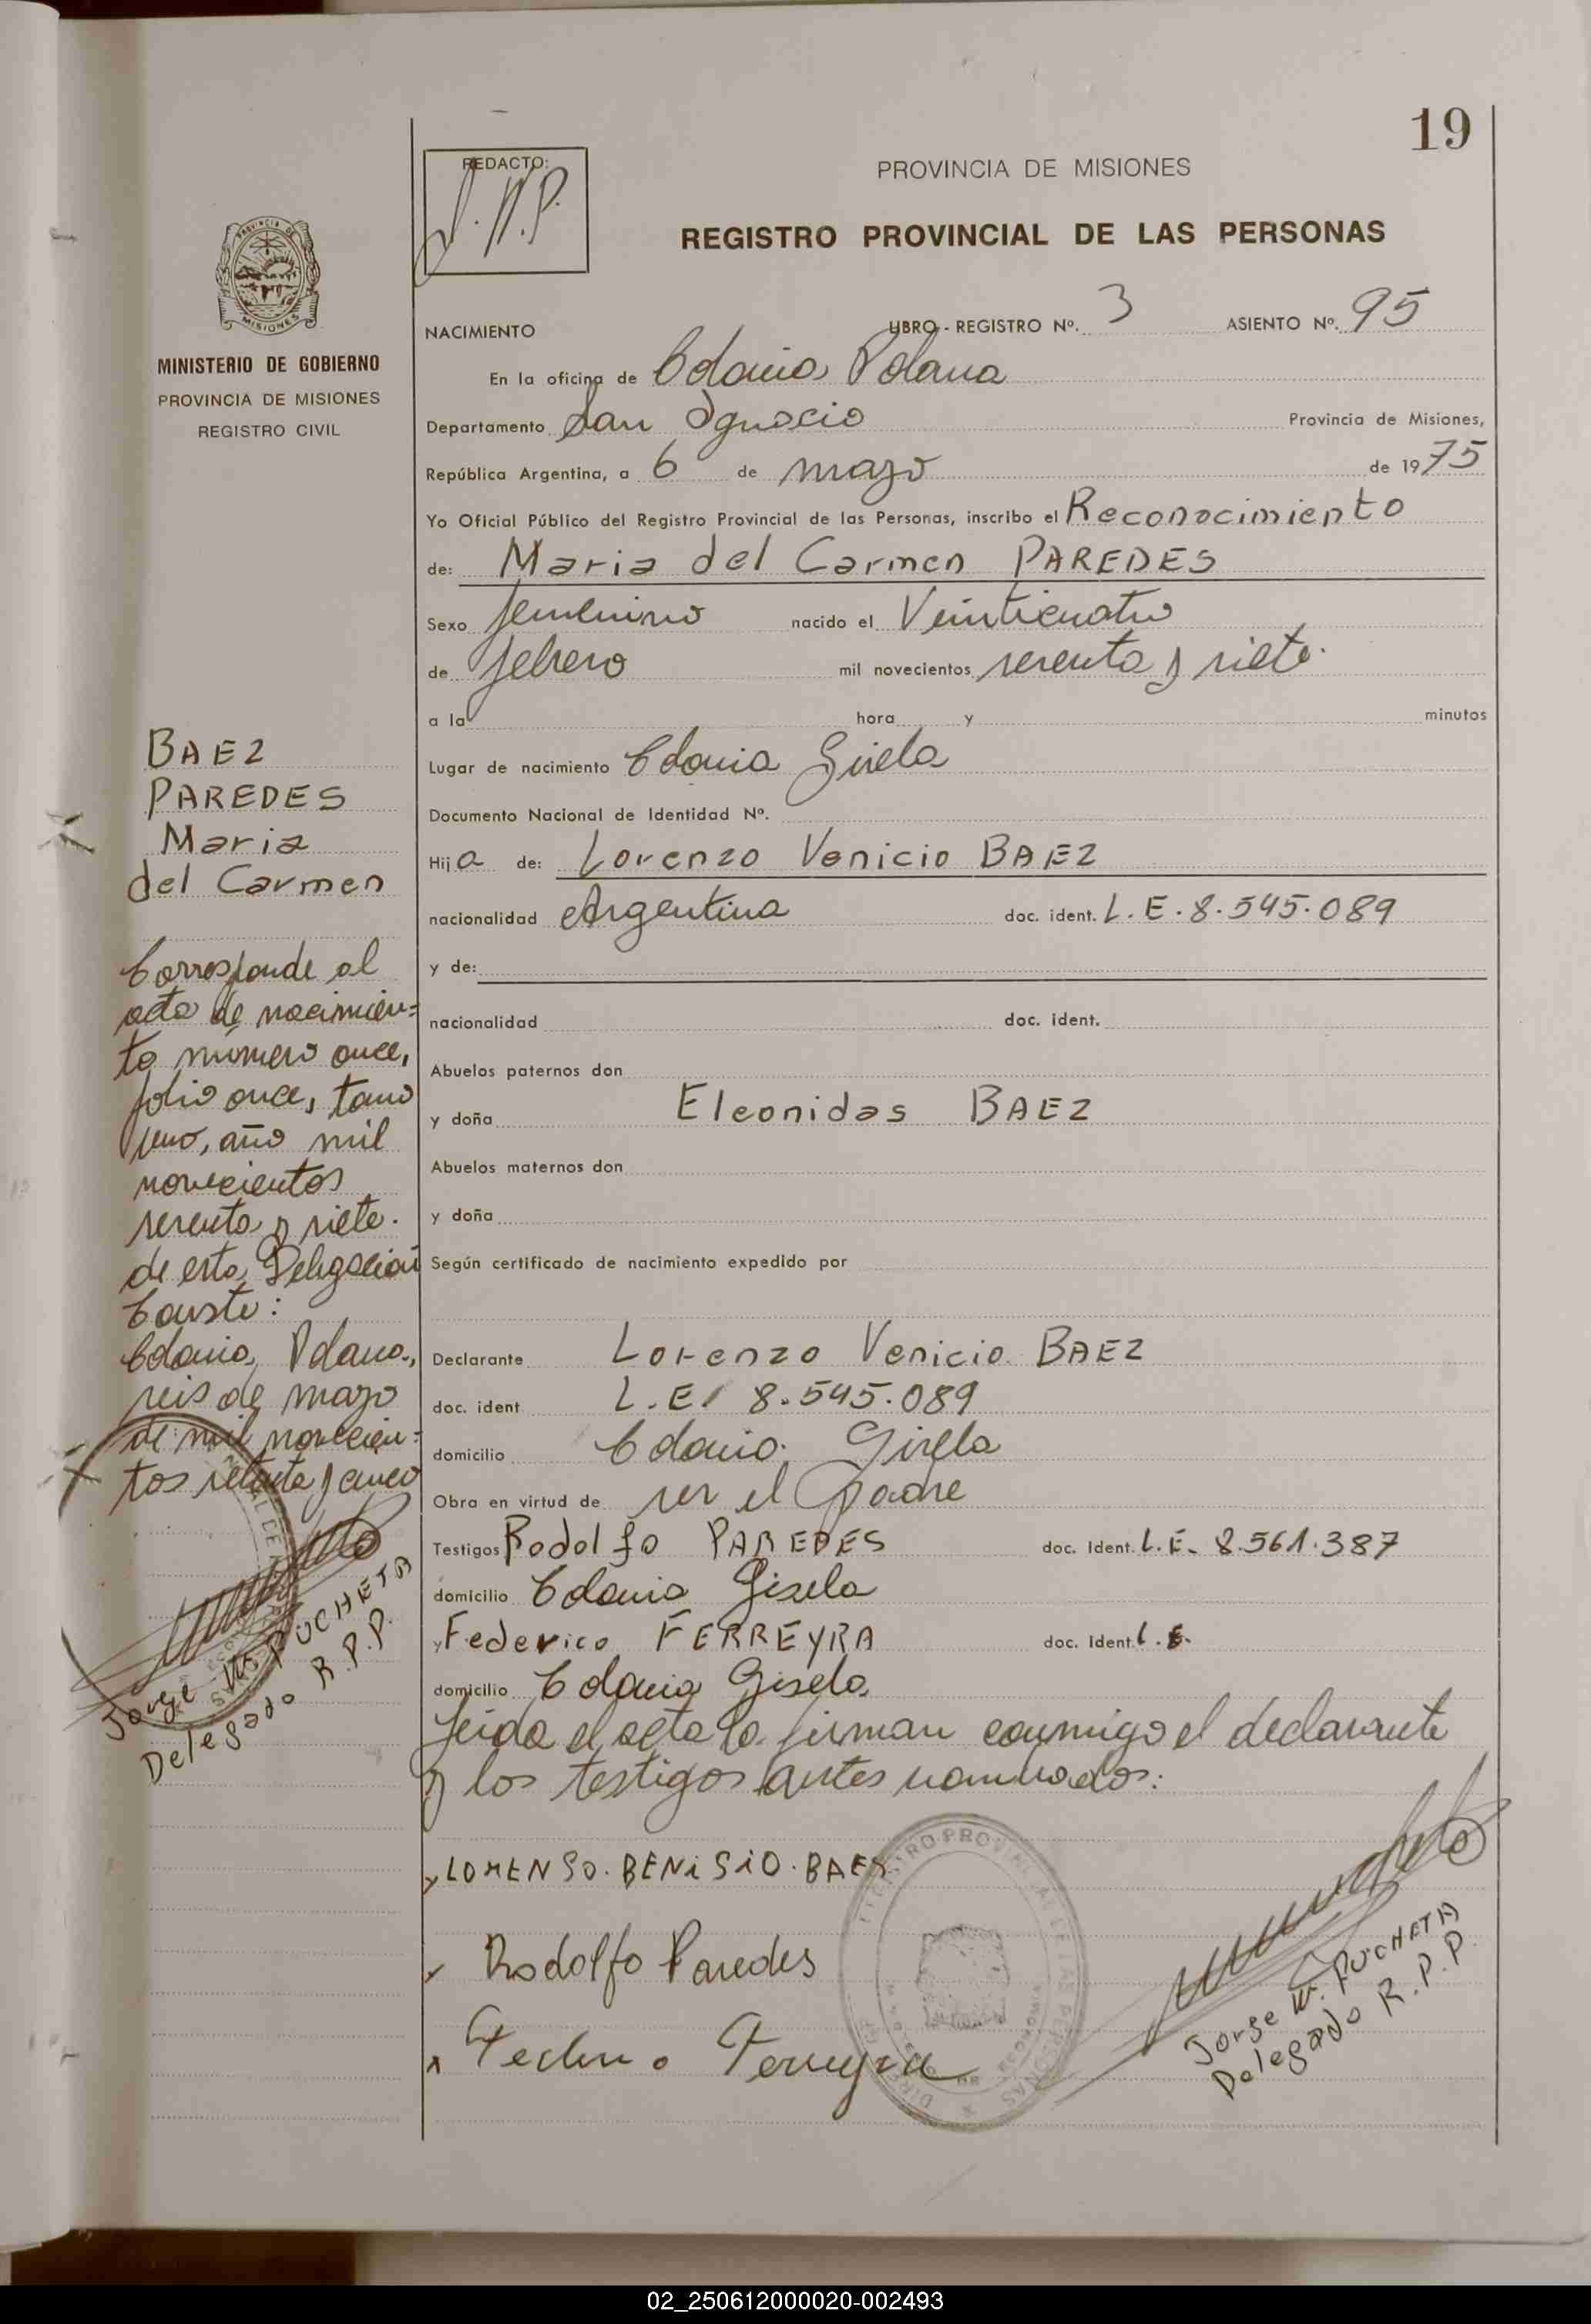 19
REDACTO:
J.W.P.
PROVINCIA DE MISIONES
REGISTRO PROVINCIAL DE LAS PERSONAS
MINISTERIO DE GOBIERNO
PROVINCIA DE MISIONES
REGISTRO CIVIL
NACIMIENTO LIBRO - REGISTRO Nº. 3 ASIENTO Nº. 95
En la oficina de Colonia Polana
Departamento San Ignacio Provincia de Misiones,
República Argentina, a 6 de mayo de 1975
Yo Oficial Público del Registro Provincial de las Personas, inscribo el Reconocimiento
de: Maria del Carmen PAREDES
Sexo femenino nacido el Veinticuatro
de febrero mil novecientos sesenta y siete.
a la hora y minutos
Lugar de nacimiento Colonia Gisela
Documento Nacional de Identidad Nº.
Hija de: Lorenzo Venicio BAEZ
nacionalidad Argentina doc. ident. L.E. 8.545.089
y de:
nacionalidad doc. ident.
Abuelos paternos don
y doña Eleonidas BAEZ
Abuelos maternos don
y doña
Según certificado de nacimiento expedido por
Declarante Lorenzo Venicio BAEZ
doc. ident L.E. 8.545.089
domicilio Colonia Gisela
Obra en virtud de ser el padre
Testigos Rodolfo PAREDES doc. Ident. L.E. 8.561.387
domicilio Colonia Gisela
y Federico FERREYRA doc. Ident. L.E.
domicilio Colonia Gisela
Leida el acta la firman conmigo el declarante
y los testigos antes nombrados:
LORENSO. BENiSiO. BAES
Rodolfo Paredes
Ferreyra
Jorge W. PUCHETA
Delegado R.P.P.
BAEZ
PAREDES
Maria
del Carmen
Corresponde al
acta de nacimien=
to número once,
folio once, tomo
uno, año mil
novecientos
sesenta y siete.
de esta Delegación
Conste:
Colonia Polana,
seis de mayo
de mil novecien=
tos setenta y cinco
Jorge W. PUCHETA
Delegado R.P.P.
02_250612000020-002493